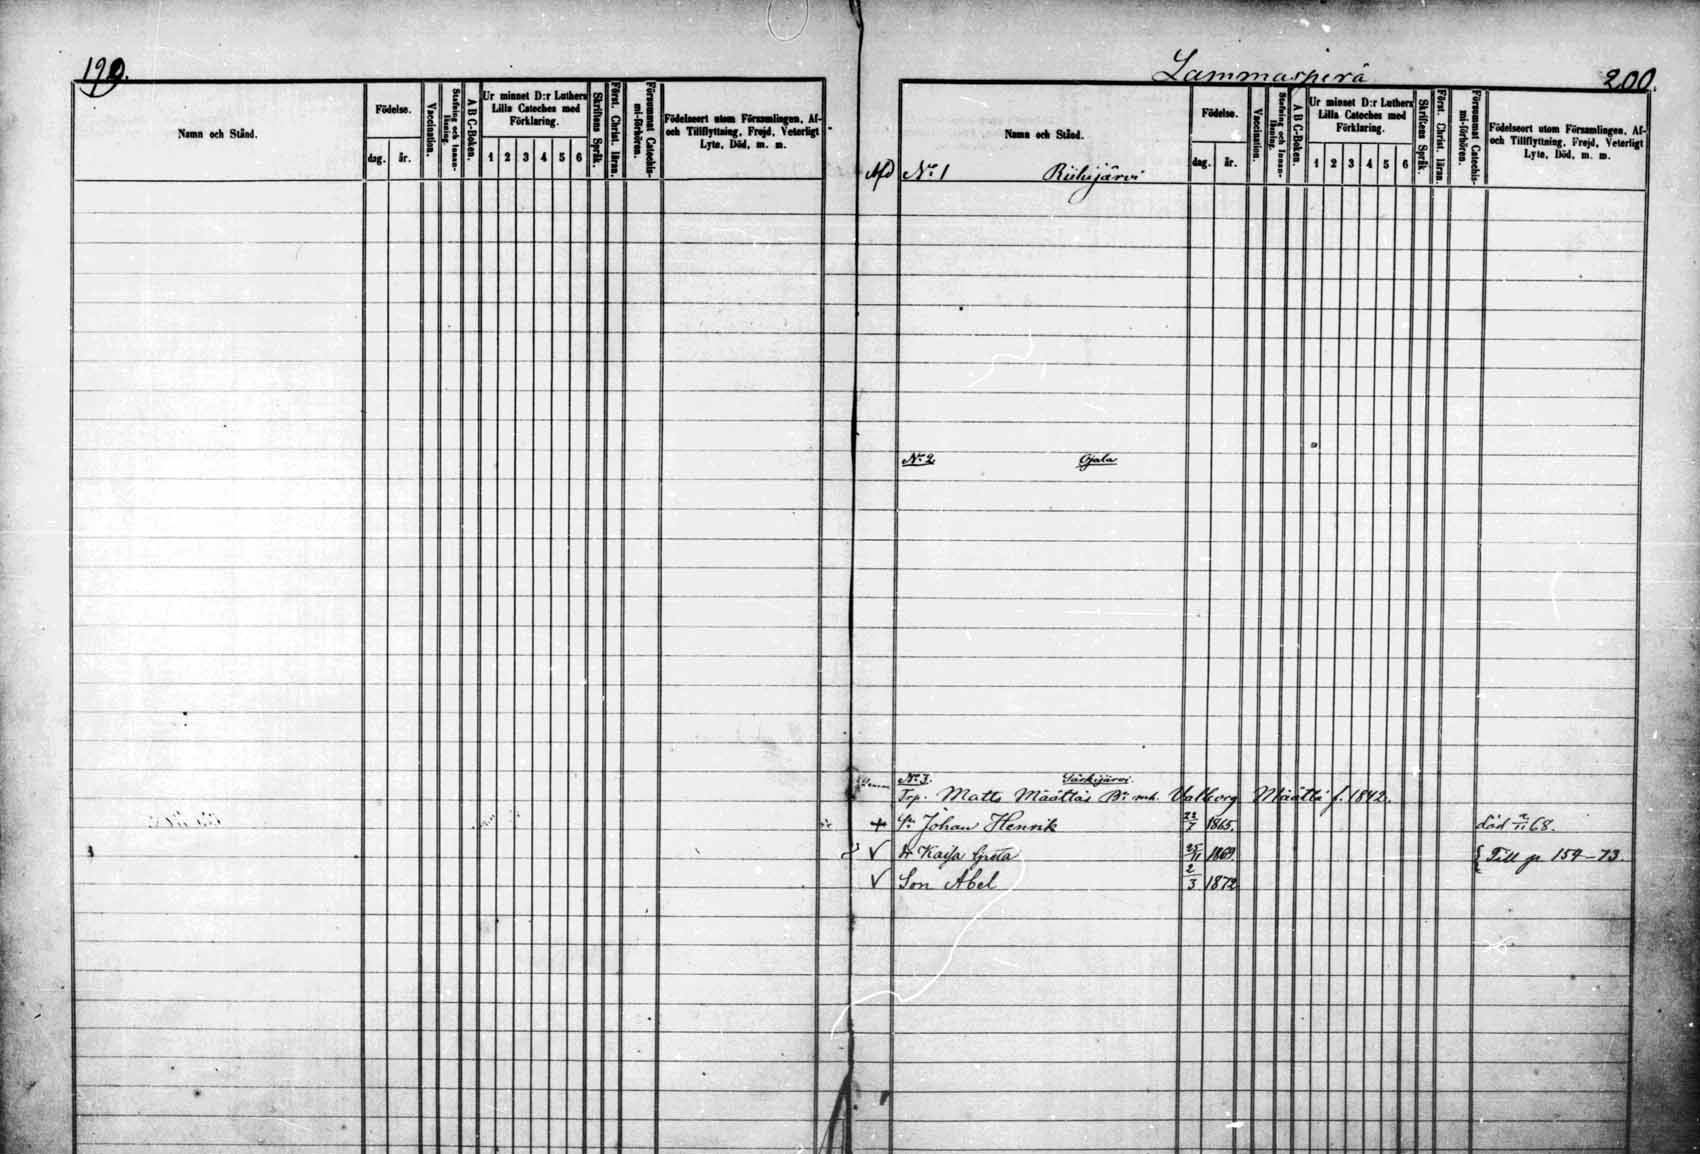 199.
Namn och Stånd.
Födelse.
dag.
år.
Vaccination.
Stafning och Innan-
läsning.
A B C-Boken.
Ur minnet D:r Luthers
Lilla Cateches med
Förklaring.
1 2 3 4 5 6
Skriftens Språk.
Först. Christ. läran.
Försummat Catechis-
mi-förhören.
Födelseort utom Församlingen, Af-
och Tillflyttning, Frejd, Veterligt
Lyte, Död, m. m.
Lammasperä
200.
Namn och Stånd.
Födelse.
dag.
år.
Vaccination.
Stafning och Innan-
läsning.
A B C-Boken.
Ur minnet D:r Luthers
Lilla Cateches med
Förklaring.
1 2 3 4 5 6
Skriftens Språk.
Först. Christ. läran.
Försummat Catechis-
mi-förhören.
Födelseort utom Församlingen, Af-
och Tillflyttning, Frejd, Veterligt
Lyte, Död, m. m.
No 1 Riihijärvi
No 2 Ojala
No 3. Särkijärvi.
Trp. Matts Määttäs Br. mh. Valborg Määttä f. 1842.
+ Sn Johan Henrik 22/7 1865. död 2/11 68.
V Dr Kaisa Greta 25/11 1869. Till p. 154-73.
V Son Abel 2/3 1872